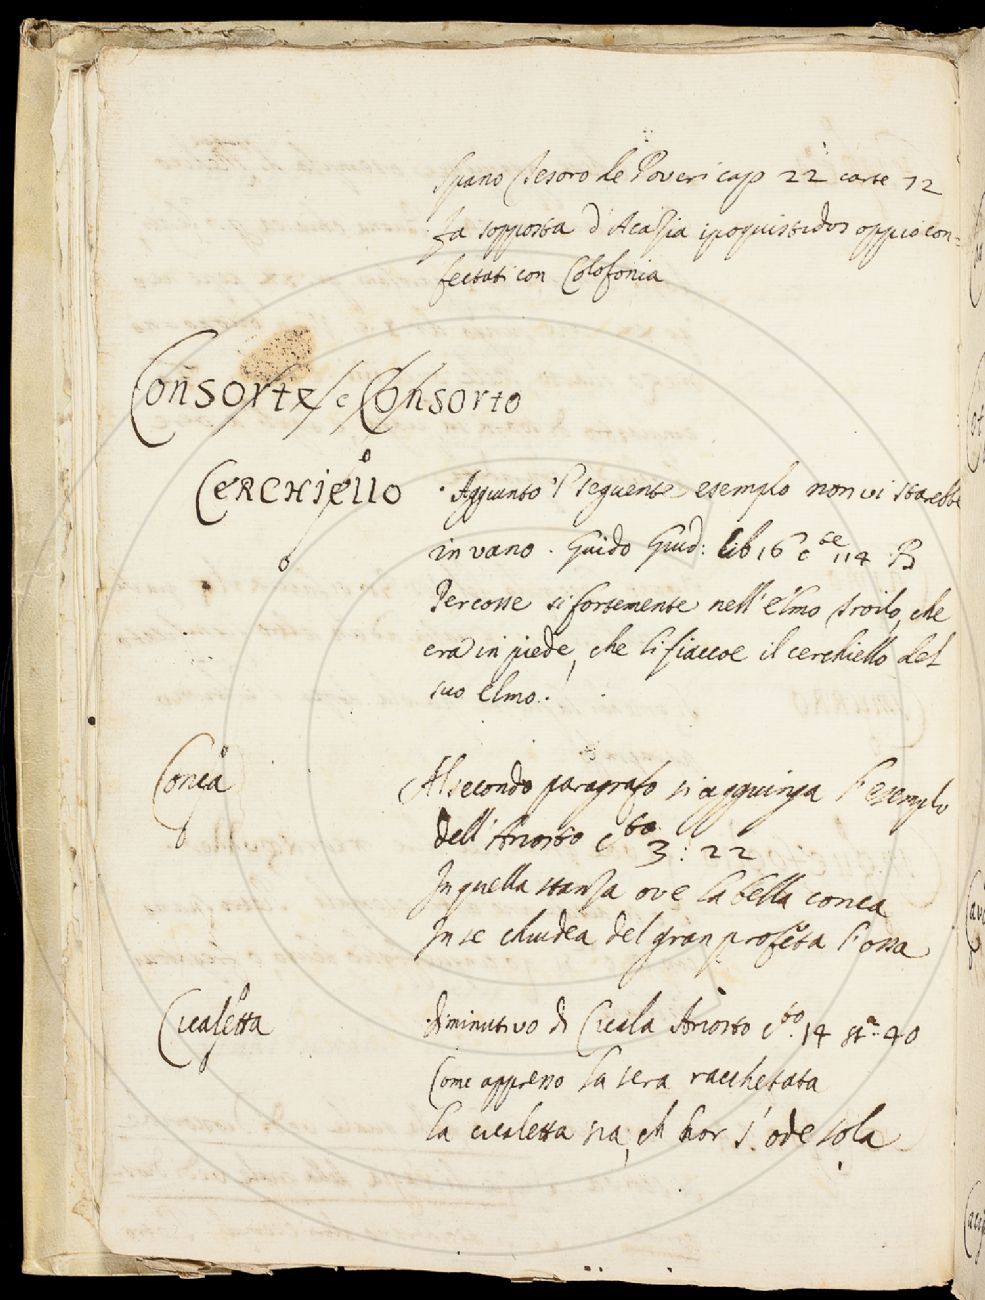 spano Tesoro de Poveri cap 22 carte 12
fa sopposta d Acazia ipoquistidos oppio con=
fectati con Colofonia
Consorte, e Consorto
CERCHIELLO · Aggiunto 'l seguente esemplo non vi starebbe
in vano. Guido Giud: lib 16 cte 114 · B
Percosse si fortemente nell' elmo Troilo, che
era in piede, che li fiaccoe il cerchiello del
suo elmo.
Conca Al secondo paragrafo si aggiunga l' esemplo
dell' Ariosto cto 3: 22
In quella stanza ove la bella conca
In se chiudea del gran profeta l' ossa
Cicaletta diminutivo di Cicala Ariosto cto. 14 sta. 40
Come appresso la sera racchetata
la cicaletta sia, ch hor s' ode sola